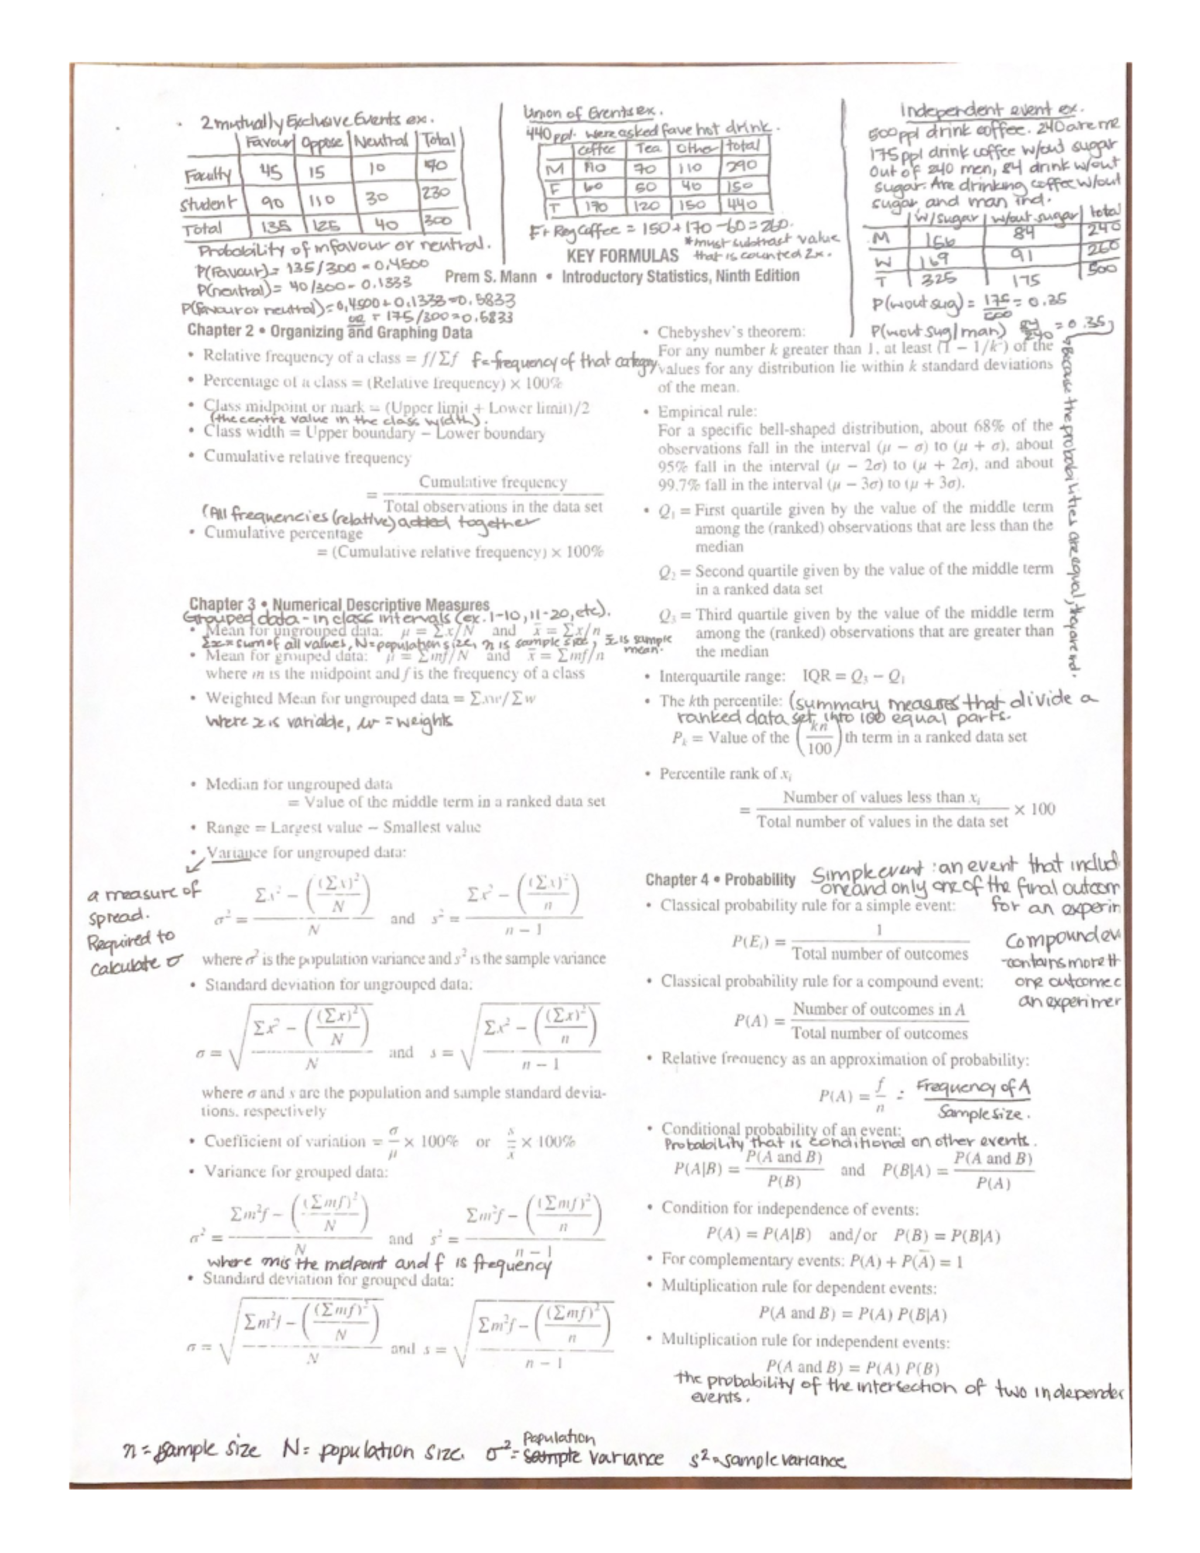 2 mutually Exclusive Events ex.
Favour Oppose Neutral Total
Faculty 45 15 10 70
Student 90 110 30 230
Total 135 125 40 300
Probability of infavour or neutral.
P(Favour) = 135/300 = 0.4500
P(neutral) = 40/300 = 0.1333
P(favour or neutral) = 0.4500 + 0.1333 = 0.5833
or 175/300 = 0.5833
Union of Events ex.
440 ppl. were asked fave hot drink.
Coffee Tea Other total
M 110 70 110 290
F 60 50 40 150
T 170 120 150 440
F + Reg Coffee = 150 + 170 - 60 = 260.
*must subtract value
that is counted 2x.
Independent event ex.
500 ppl drink coffee. 240 are me
175 ppl drink coffee w/out sugar
Out of 240 men, 84 drink w/out
sugar. Are drinking coffee w/out
sugar and man ind.
w/sugar w/out sugar total
M 156 84 240
W 169 91 260
T 325 175 500
P(wout sug) = 175/500 = 0.35
P(wout sug/man) 84/240 = 0.35
Because the probabilities are equal, they are ind.
KEY FORMULAS
Prem S. Mann • Introductory Statistics, Ninth Edition
Chapter 2 • Organizing and Graphing Data
• Relative frequency of a class = f/Σf f = frequency of that category
• Percentage of a class = (Relative frequency) × 100%
• Class midpoint or mark = (Upper limit + Lower limit)/2
(the centre value in the class width).
• Class width = Upper boundary − Lower boundary
• Cumulative relative frequency
= Cumulative frequency / Total observations in the data set
(All frequencies (relative) added together
• Cumulative percentage
= (Cumulative relative frequency) × 100%
Chapter 3 • Numerical Descriptive Measures
Grouped data - in class intervals (ex. 1-10, 11-20, etc).
• Mean for ungrouped data: μ = Σx/N and x̄ = Σx/n
Σx = sum of all values, N = population size, n is sample size, x̄ is sample mean.
• Mean for grouped data: μ = Σmf/N and x̄ = Σmf/n
where m is the midpoint and f is the frequency of a class
• Weighted Mean for ungrouped data = Σxw/Σw
Where x is variable, w = weights
• Median for ungrouped data
= Value of the middle term in a ranked data set
• Range = Largest value − Smallest value
• Variance for ungrouped data:
a measure of
spread.
Required to
calculate σ
σ² = (Σx² − ((Σx)²/N))/N and s² = (Σx² − ((Σx)²/n))/(n − 1)
where σ² is the population variance and s² is the sample variance
• Standard deviation for ungrouped data:
σ = √((Σx² − ((Σx)²/N))/N) and s = √((Σx² − ((Σx)²/n))/(n − 1))
where σ and s are the population and sample standard devia-
tions, respectively
• Coefficient of variation = σ/μ × 100% or s/x̄ × 100%
• Variance for grouped data:
σ² = (Σm²f − ((Σmf)²/N))/N and s² = (Σm²f − ((Σmf)²/n))/(n − 1)
where m is the midpoint and f is frequency
• Standard deviation for grouped data:
σ = √((Σm²f − ((Σmf)²/N))/N) and s = √((Σm²f − ((Σmf)²/n))/(n − 1))
• Chebyshev's theorem:
For any number k greater than 1, at least (1 − 1/k²) of the
values for any distribution lie within k standard deviations
of the mean.
• Empirical rule:
For a specific bell-shaped distribution, about 68% of the
observations fall in the interval (μ − σ) to (μ + σ), about
95% fall in the interval (μ − 2σ) to (μ + 2σ), and about
99.7% fall in the interval (μ − 3σ) to (μ + 3σ).
• Q₁ = First quartile given by the value of the middle term
among the (ranked) observations that are less than the
median
Q₂ = Second quartile given by the value of the middle term
in a ranked data set
Q₃ = Third quartile given by the value of the middle term
among the (ranked) observations that are greater than
the median
• Interquartile range: IQR = Q₃ − Q₁
• The kth percentile: (summary measures that divide a
ranked data set into 100 equal parts.
Pₖ = Value of the (kn/100)th term in a ranked data set
• Percentile rank of xᵢ
= Number of values less than xᵢ / Total number of values in the data set × 100
Chapter 4 • Probability Simple event : an event that includ
one and only one of the final outcom
• Classical probability rule for a simple event: for an experin
P(Eᵢ) = 1 / Total number of outcomes
Compound ev
-contains more th
one outcome c
an experimer
• Classical probability rule for a compound event:
P(A) = Number of outcomes in A / Total number of outcomes
• Relative frequency as an approximation of probability:
P(A) = f/n = Frequency of A / Sample size.
• Conditional probability of an event:
Probability that is conditional on other events.
P(A|B) = P(A and B)/P(B) and P(B|A) = P(A and B)/P(A)
• Condition for independence of events:
P(A) = P(A|B) and/or P(B) = P(B|A)
• For complementary events: P(A) + P(Ā) = 1
• Multiplication rule for dependent events:
P(A and B) = P(A) P(B|A)
• Multiplication rule for independent events:
P(A and B) = P(A) P(B)
the probability of the intersection of two independer
events.
n = sample size N = population size. σ² = Population sample variance s² = sample variance